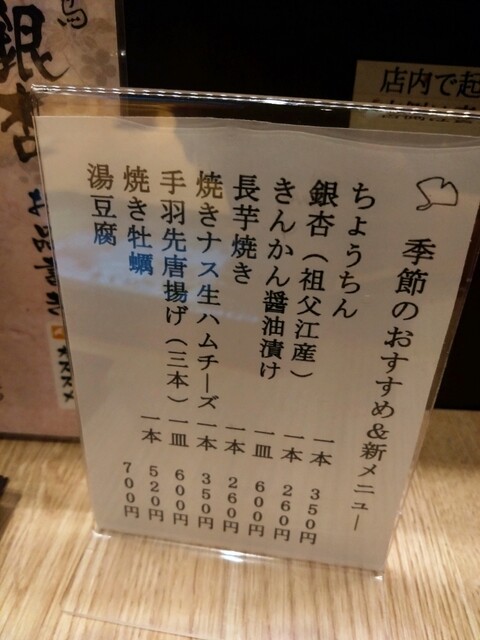 季節のおすすめ&新メニュー
ちょうちん 一本 350円
銀杏（祖父江産） 一本 260円
きんかん醤油漬け 一皿 600円
長芋焼き 一本 260円
焼きナス生ハムチーズ 一本 350円
手羽先唐揚げ（三本） 一皿 600円
焼き牡蠣 一本 520円
湯豆腐 700円
店内で起
銀杏
お品書き
オススメ